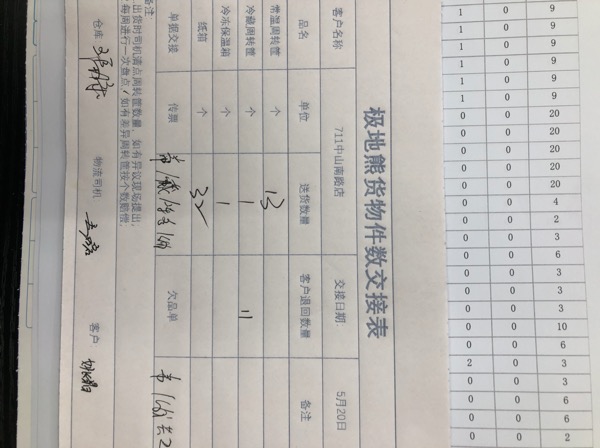 极地熊货物件数交接表
客户名称 711中山南路店 交接日期: 5月20日
品名 单位 送货数量 客户退回数量 备注
常温周转筐 个 13
冷藏周转筐 个 1 11
冷冻保温箱 个 1
纸箱 个 32
单据交接 传票 欠品单
备注:
出货时司机清点周转筐数量,如有异议现场提出,
每周进行一次盘点,如有差异周转筐按个数赔偿;
仓库: 物流司机 客户
1 0 9
1 0 9
1 0 9
1 0 9
1 0 9
1 0 9
0 0 20
0 0 20
0 0 20
0 0 20
0 0 20
0 0 4
0 0 2
0 0 3
0 0 6
0 0 3
0 0 3
0 0 3
0 0 10
0 0 6
2 0 3
0 0 3
0 0 6
0 0 6
0 0 2